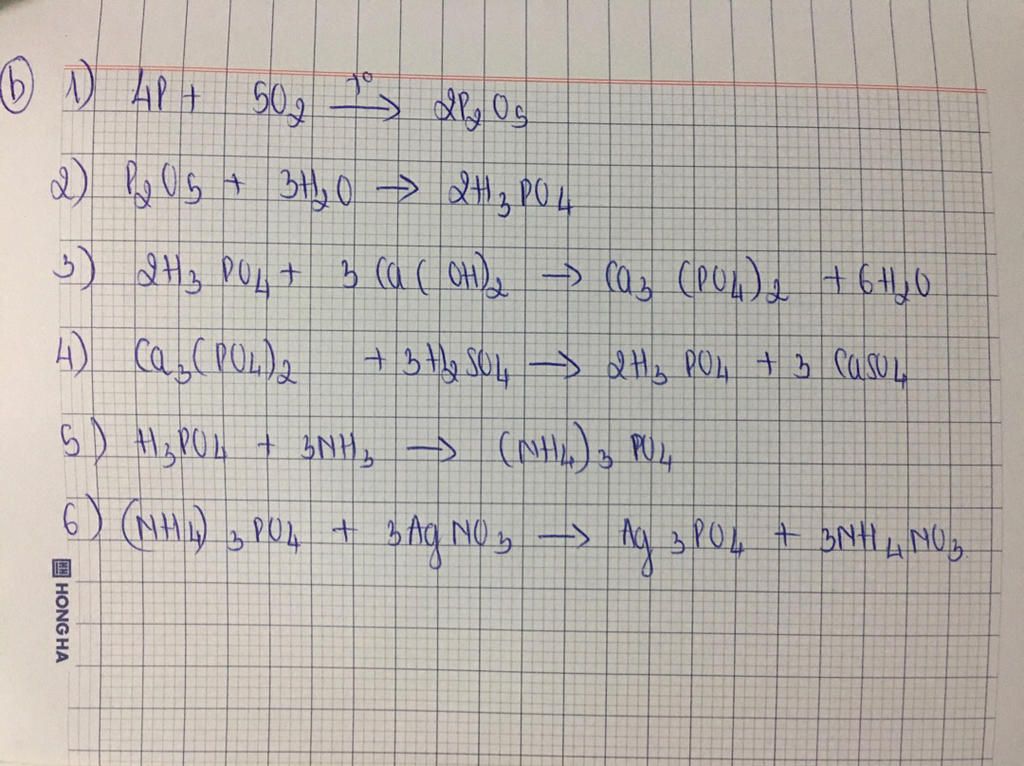 b 1) 4P + 5O2 t° → 2P2O5
2) P2O5 + 3H2O → 2H3PO4
3) 2H3PO4 + 3Ca(OH)2 → Ca3(PO4)2 + 6H2O
4) Ca3(PO4)2 + 3H2SO4 → 2H3PO4 + 3CaSO4
5) H3PO4 + 3NH3 → (NH4)3PO4
6) (NH4)3PO4 + 3AgNO3 → Ag3PO4 + 3NH4NO3
HONG HA